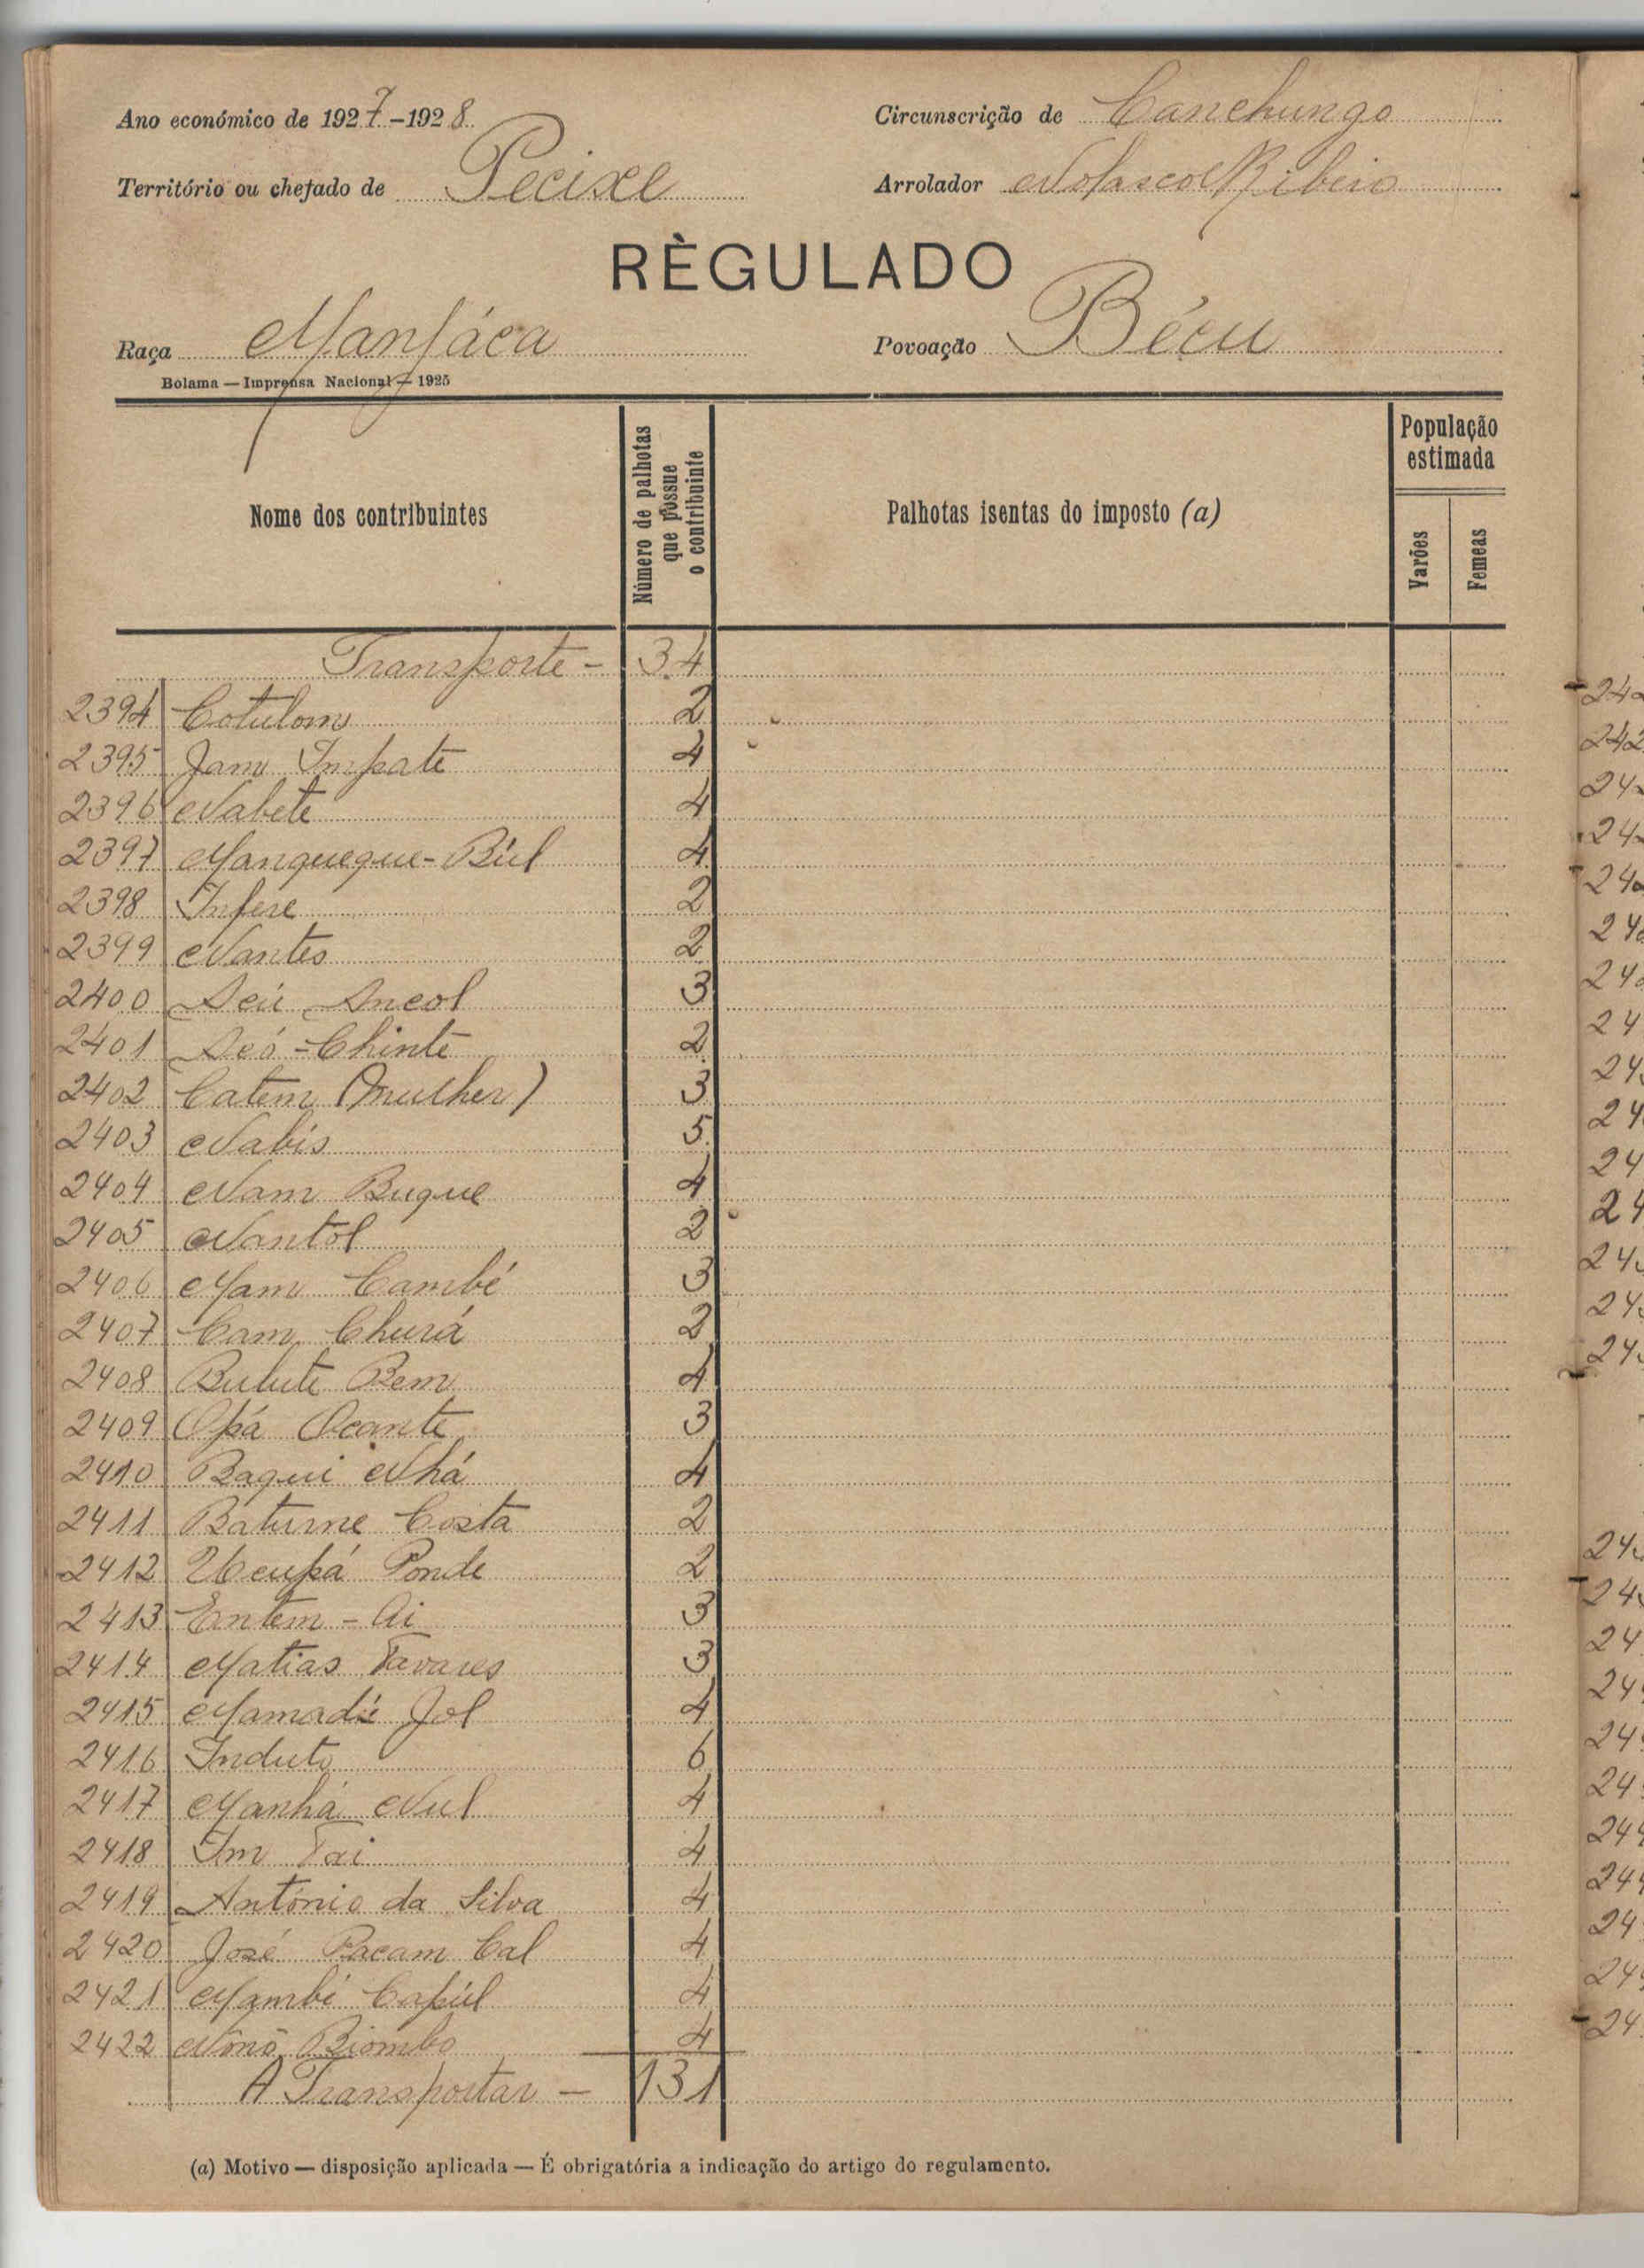 Ano económico de 1927-1928
Circunscrição de Canchungo
Território ou chefado de Pecixe
Arrolador Nolasco Ribeiro
RÈGULADO
Raça Manjáca
Povoação Bécu
Bolama — Imprensa Nacional — 1925
Nome dos contribuintes
Número de palhotas que possue o contribuinte
Palhotas isentas do imposto (a)
População estimada
Varões
Femeas
Transporte - 34
2394 Cotulom 2
2395 Jam Impate 4
2396 Nabete 4
2397 Manqueque-Biul 4
2398 Infere 2
2399 Nantes 2
2400 Seú Ancol 3
2401 Seó-Chinte 2
2402 Catem (mulher) 3
2403 Nabis 5
2404 Nam Buque 4
2405 Nantol 2
2406 Mam Cambé 3
2407 Cam Churá 2
2408 Bulute Bem 4
2409 Opá Ocante 3
2410 Baqui Nhá 4
2411 Baturne Costa 2
2412 Ucupá Ponde 2
2413 Entem-Ai 3
2414 Matias Tavares 3
2415 Mamadú Jol 4
2416 Induto 6
2417 Manhá Nul 4
2418 Im Tai 4
2419 António da Silva 4
2420 José Pacam Cal 4
2421 Mambi Capúl 4
2422 Nônô Biombo 4
A Transportar - 131
(a) Motivo — disposição aplicada — É obrigatória a indicação do artigo do regulamento.